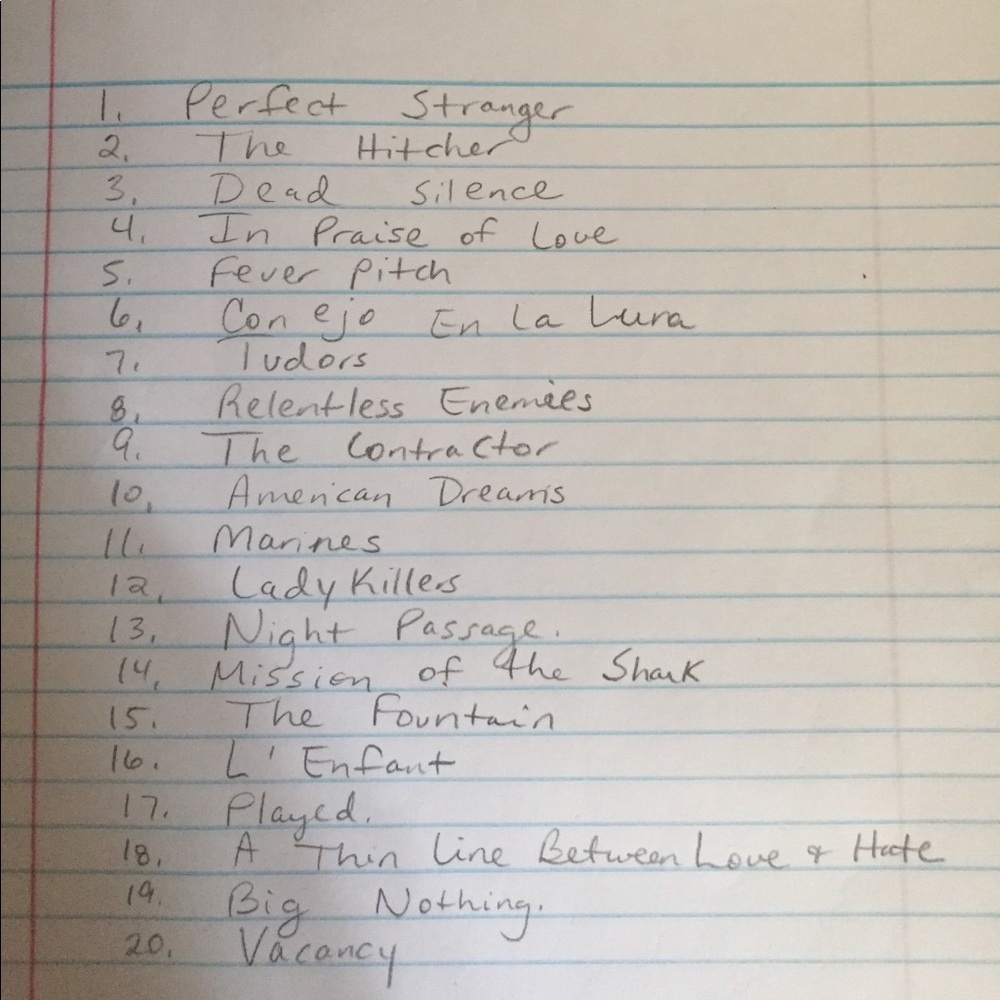 1. Perfect Stranger
2. The Hitcher
3. Dead Silence
4. In Praise of Love
5. Fever Pitch
6. Conejo En La Luna
7. Tudors
8. Relentless Enemies
9. The Contractor
10. American Dreams
11. Marines
12. Lady Killers
13. Night Passage.
14. Mission of the Shark
15. The Fountain
16. L' Enfant
17. Played.
18. A Thin Line Between Love & Hate
19. Big Nothing.
20. Vacancy